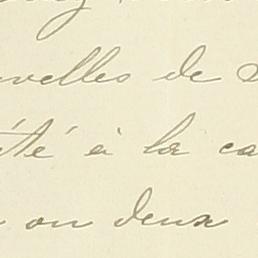 velles de
été à la ca
ou deux